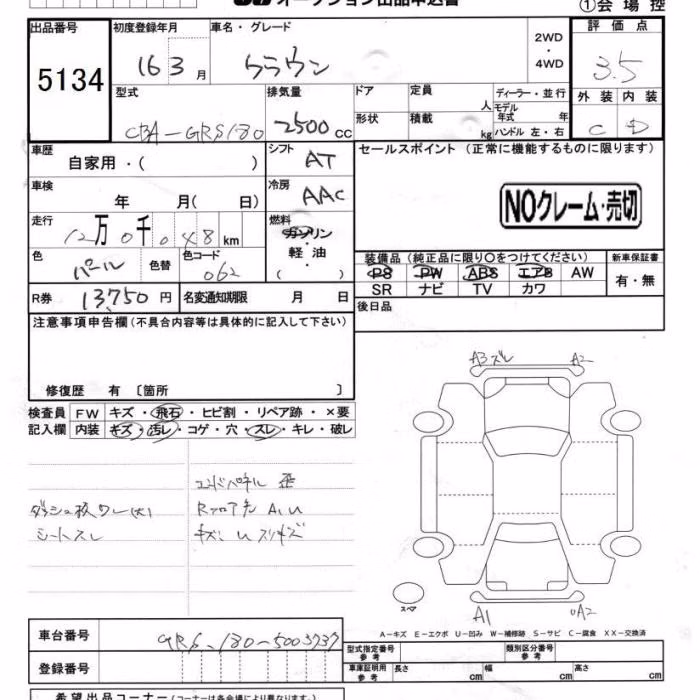 ①会場控
出品番号 初度登録年月 車名・グレード 2WD・4WD 評価点
5134 16 3月 クラウン 3.5
型式 排気量 ドア 定員 人 ディーラー・並行 外装 内装
CBA-GRS180 2500cc 形状 積載 kg モデル年式 年 ハンドル 左・右 C D
車歴 自家用・( ) シフト AT セールスポイント (正常に機能するものに限ります)
車検 年 月( 日) 冷房 AAC
NOクレーム・売切
走行 12万0千048km 燃料 ガソリン・軽油 ( )
色 パール 色替 色コード 062
装備品 (純正品に限り○をつけてください) 新車保証書
PS PW ABS エアB AW 有・無
SR ナビ TV カワ
R券 13750円 名変通知期限 月 日
後日品
注意事項申告欄 (不具合内容等は具体的に記入して下さい)
修復歴 有 〔箇所 〕
A3ズレ A2
検査員 FW キズ・飛石・ヒビ割・リペア跡・×要
記入欄 内装 キズ・汚レ・コゲ・穴・スレ・キレ・破レ
エンドパネル 歪
ダッシュ板ワレ(大) Rフロア先 A1 U
シートスレ キズ、U スリキズ
スペア
A1 A2
A-キズ E-エクボ U-凹み W-補修跡 S-サビ C-腐食 XX-交換済
車台番号 GRS-180-5003737
型式指定番号 参考 類別区分番号 参考
登録番号
車庫証明用 参考 長さ cm 幅 cm 高さ cm
希望出品コーナー (コーナーは各会場により異なります。)